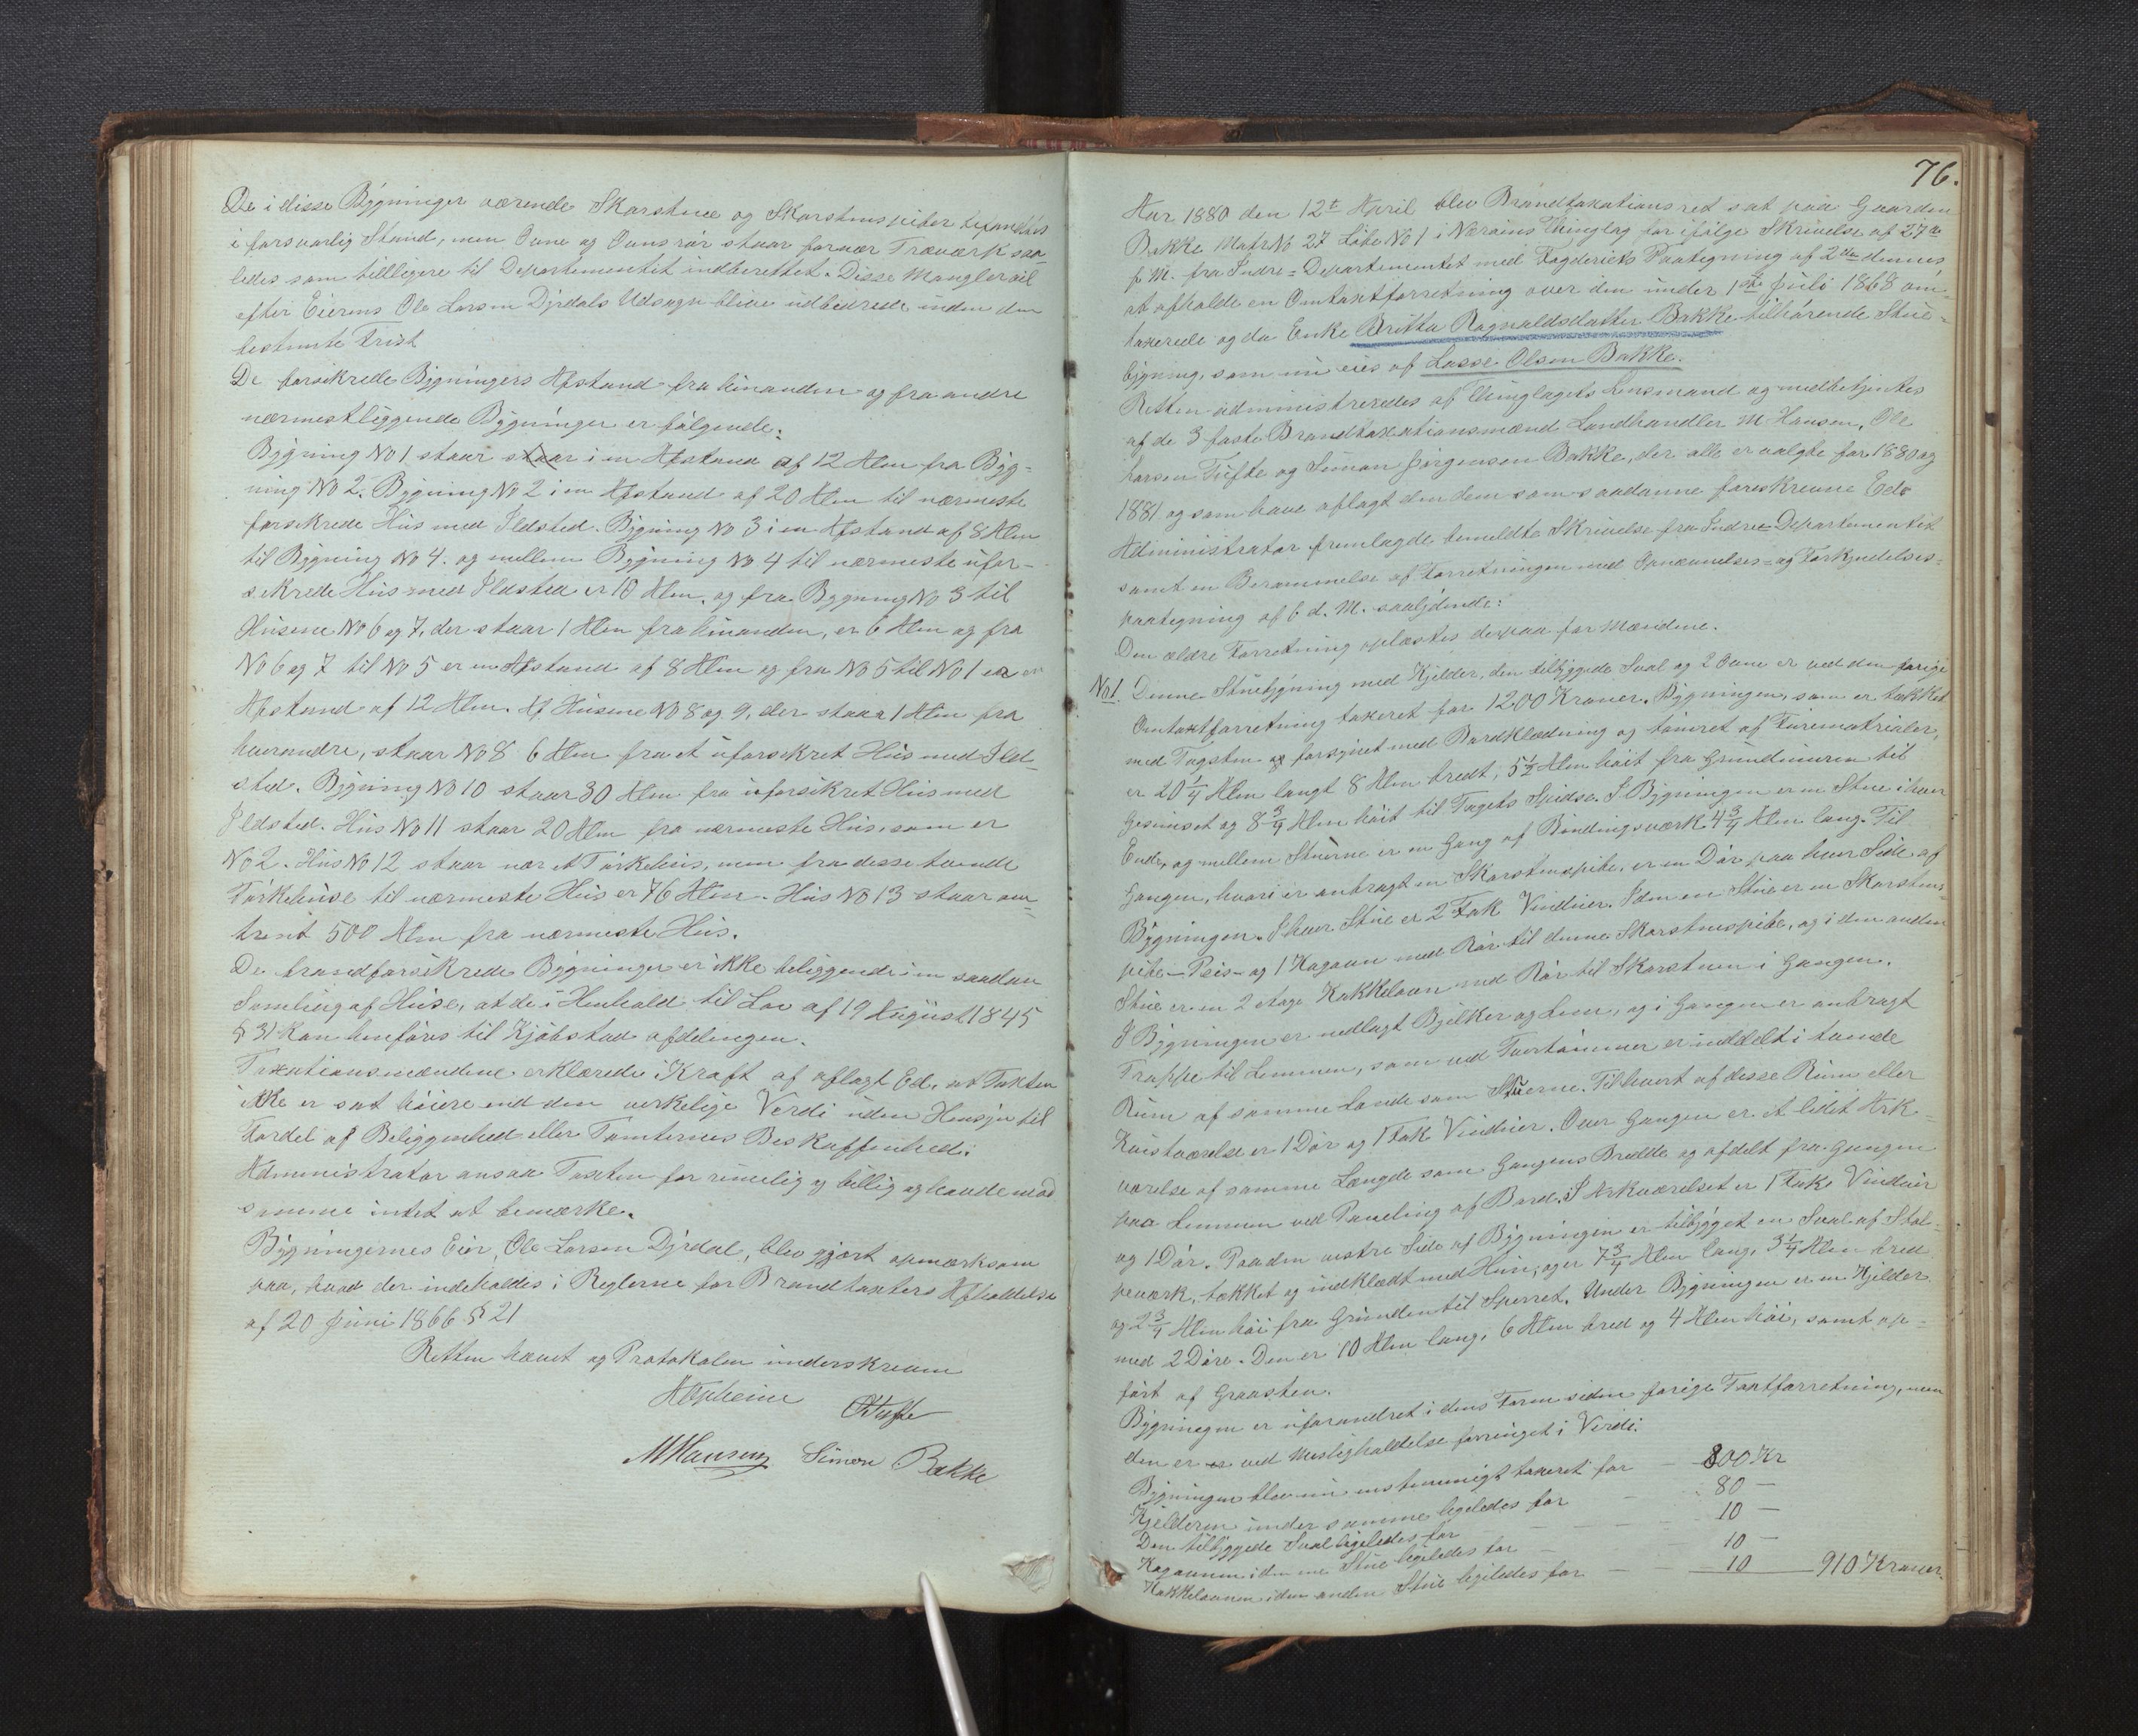 De i disse Bÿgninger værende Skorstene og Skorstenspiber befandtes
i forsvarlig Stand, men Ovne og Ovnsrör staar for nær Træværk saa-
ledes som tidligere til Departementet indberettet. Disse Mangler vil
efter Eierens Ole Larsen Dÿrdals Udsagn blive udbedrede inden den
bestemte Frist
De forsikrede Bÿgningers Afstand fra hinanden og fra andre
nærmestliggende Bÿgninger er fölgende:
Bÿgning No 1 staar staar i en Afstand af 12 Alen fra Bÿg-
ning No 2. Bÿgning No 2 i en Afstand af 20 Alen til nærmeste
forsikrede Hus med Ildsted. Bÿgning No 3 i en Afstand af 8 Alen
til Bÿgning No 4. og mellem Bÿgning No 4 til nærmeste ufor-
sikrede Hus med Ildsted er 10 Alen, og fra Bygning No 3 til
Husene No 6 og 7, der staar 1 Alen fra hinanden, er 6 Alen og fra
No 6 og 7 til No 5 er en Afstand af 8 Alen og fra No 5 til No 1 er en
Afstand af 12 Alen. Af Husene No 8 og 9, der staar 1 Alen fra
hverandre, staar No 8 6 Alen fra et uforsikret Hus med Ild-
sted. Bÿgning No 10 staar 30 Alen fra uforsikret Hus med
Ildsted. Hus No 11 staar 20 Alen fra nærmeste Hus som er
No 2. Hus No 12 staar nær et Törkehus, men fra disse tvende
Törkehuse til nærmeste Hus er 76 Alen. Hus No 13 staar om-
trent 500 Alen fra nærmeste Hus.
De brandforsikrede Bÿgninger er ikke beliggende i en saadan
Samling af Huse, at de i Henhold til Lov af 19 August 1845
§ 31 kan henföres til Kjöbstad afdelingen.
Taxationsmændene erklærede i Kraft af aflagt Ed, at Taxten
ikke er sat höiere end den virkelige Verdi uden Hensÿn til
Fordel af Beliggenhed eller Tomternes Beskaffenhed.
Administrator ansaa Taxten for rimelig og billig og havde mod
samme intet at bemærke.
Bÿgningernes Eier, Ole Larsen Dÿrdal, blev gjort opmærksom
paa, hvad der indeholdes i Reglerne for Brandtaxters Afholdelse
af 20 Juni 1866 § 21
Retten hævet og Protokolen underskreven
OTufte
MHansen Simon Bakke
76.
Aar 1880 den 12te April blev Brandtaxationsret sat paa Gaarden
Bakke Matr No 27 Löbe No 1 i Næröens Thinglag for ifölge Skrivelse af 27de
f. M. fra Indre-Departementet med Fogderiets Paategning af 2den dennes
at afholde en Omtaxtforretning over den under 1ste Juli 1868 om-
taxerede og da Enke Britta Ragnvaldsdatter Bakke tilhörende Stue-
bÿgning, som nu eies af Lasse Olsen Bakke.
Retten administreredes af Thinglagets Lensmand og medbetjentes
af de 3 faste Brandtaxationsmænd Landhandler M Hansen, Ole
Larsen Tufte og Simon Jörgensen Bakke, der alle er valgte for 1880 og
1881 og som have aflagt den dem som saadanne foreskrevne Ed.
Administrator fremlagde bemeldte Skrivelse fra Indre-Departementet
samt en Berammelse af Forretningen med Opnævnelses- og Forkyndelses-
paategning af 6 d. M. saalÿdende:
Den ældre Forretning oplæstes derpaa for Mændene.
No 1. Denne Stuebÿgning med Kjelder, den tilbÿggede Sval og 2 Ovne er ved den forige
Omtaxtforretning taxeret for 1200 Kroner. Bÿgningen, som er tækket
med Tagsten og forsÿnet med Bordklædning og tömret af Furematerialer,
er 20 1/4 Alen langt 8 Alen bredt, 5 1/2 Alen höit fra Grundmuren til
Gesimset og 8 3/4 Alen höit til Tagets Spidse. I Bÿgningen er en Stue i hver
Ende, og mellem Stuerne er en Gang af Bindingsværk 4 3/4 Alen lang. Til
Gangen, hvori er anbragt en Skorstenspibe, er en Dör paa hver Side af
Bÿgningen. I hver Stue er 2 Fak Vinduer. I den ene Stue er en Skorstens-
pibe - Peis - og 1 Kagovn med Rör til denne Skorstenspibe, og i den anden
Stue er en 2 etages Kakkelovn med Rör til Skorstenen i Gangen.
I Bÿgningen er nedlagt Bjelker og Lem, og i Gangen er anbragt
Trappe til Lemmen, som ved Tvertömmer er inddelt i tvende
Rum af samme Lænde som Stuerne. Til hvert af disse Rum eller
Kvistværelse er 1 Dör og 1 Fak Vinduer. Over Gangen er et lidet Ark-
værelse af samme Længde som Gangens Bredde og afdelt fra Gangen
paa Lemmen ved Paneling af Bord. I Arkværelset er 1 Faks Vinduer
og 1 Dör. Paa den vestre Side af Bÿgningen er tilbÿgget en Sval af Stol-
peværk, tækket og indklædt med Hun, og er 7 3/4 Alen lang, 3 1/4 Alen bred
og 2 3/4 Alen höi fra Grunden til Sperret. Under Bÿgningen er en Kjelder
med 2 Döre. Den er 10 Alen lang, 6 Alen bred og 4 Alen höi, samt op-
fört af Graasten.
Bÿgningen er uforandret i dens Form siden forige Taxtforretning, men
den er ved Misligholdelse forringet i Verdi.
Bÿgningen blev nu enstemmigt taxeret for — 800 Kr
Kjelderen under samme ligeledes for — 80 —
Den tilbÿggede Sval ligeledes for — 10 —
Kagovnen i den ene Stue ligeledes for — 10 —
Kakkelovnen i den anden Stue ligeledes for — 10 — 910 Kroner.